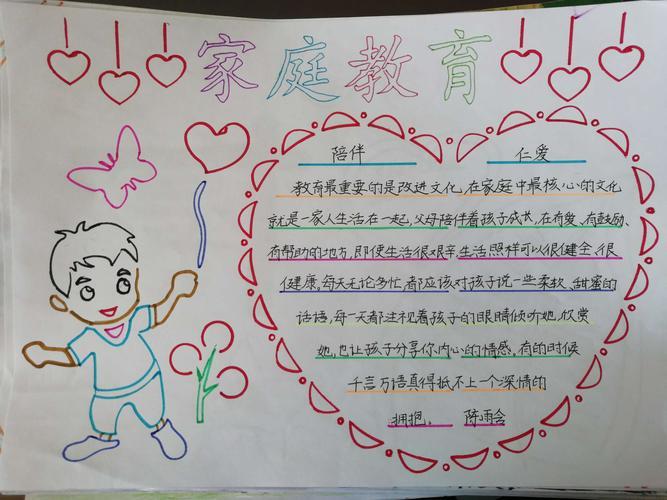 家庭教育
陪伴 仁爱
教育最重要的是改进文化,在家庭中最核心的文化
就是一家人生活在一起,父母陪伴着孩子成长,在有爱、有鼓励、
有帮助的地方,即使生活很艰辛,生活照样可以很健全、很
健康,每天无论多忙,都应该对孩子说一些柔软、甜蜜的
话语,每一天都注视着孩子的眼睛倾听她,欣赏
她,也让孩子分享你内心的情感,有的时候
千言万语真得抵不上一个深情的
拥抱。 陈雨含